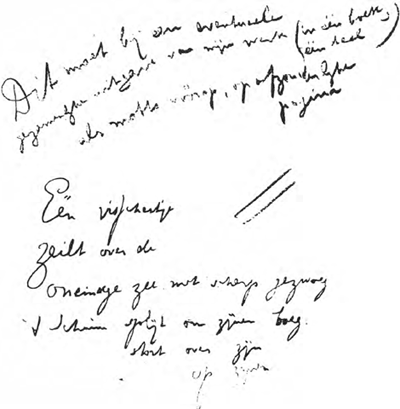 Dit moet bij een eventueele
gezamenlijke uitgave van mijn werk (in één boek,
één deel)
als motto vóórop, op afzonderlijke
pagina
Eén visschertje
zeilt over de
oneindige zee met scherp
't Schuim splijt om zijnen boeg
stort over zijn
op zijnen